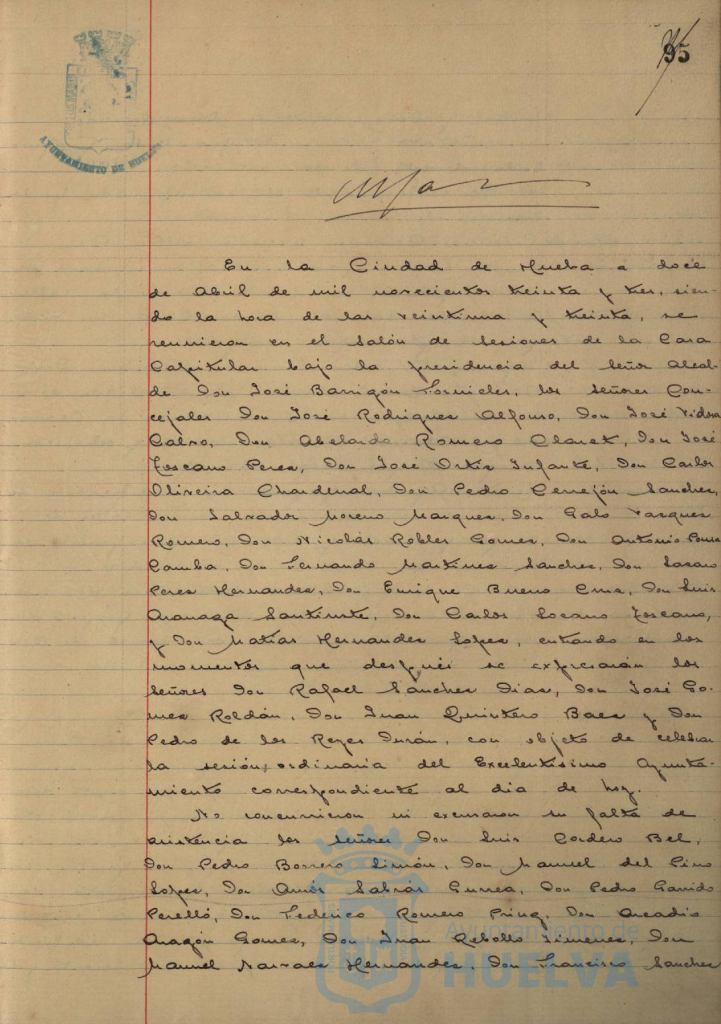 95
AYUNTAMIENTO DE HUELVA
En la Ciudad de Huelva a doce
de Abril de mil novecientos treinta y tres, sien-
do la hora de las veintiuna y treinta, se
reunieron en el Salón de Sesiones de la Casa
Capitular bajo la presidencia del Señor Alcal-
de Don José Barrigón Fornieles, los Señores Con-
cejales Don José Rodriguez Alfonso, Don José Vidosa
Calvo, Don Abelardo Romero Claret, Don José
Toscano Perez, Don José Ortiz Infante, Don Carlos
Oliveira Chardenal, Don Pedro Cerrejón Sanchez,
Don Salvador Moreno Marquez, Don Galo Vazquez
Romero, Don Nicolás Robles Gomez, Don Antonio Pousa
Camba, Don Fernando Martinez Sanchez, Don Lazaro
Perez Hernandez, Don Enrique Bueno Cruz, Don Luis
Aranaga Santiuste, Don Carlos Lozano Toscano,
y Don Matias Hernandez Lopez, entrando en los
momentos que después se expresarán los
Señores Don Rafael Sanchez Diaz, Don José Go-
mez Roldán, Don Juan Quintero Baez y Don
Pedro de los Reyes Durán, con objeto de celebrar
la sesión ordinaria del Excelentisimo Ayunta-
miento correspondiente al dia de hoy.
No concurrieron ni excusaron su falta de
asistencia los Señores Don Luis Cordero Bel,
Don Pedro Borrero Limón, Don Manuel del Pino
Lopez, Don Amós Sabrás Gurrea, Don Pedro Garrido
Perelló, Don Federico Romero Don Arcadio
Aragón Gomez, Don Juan Rebollo Jimenez, Don
Manuel Narvaez Hernandez, Don Francisco Sanchez
Ayuntamiento de
HUELVA